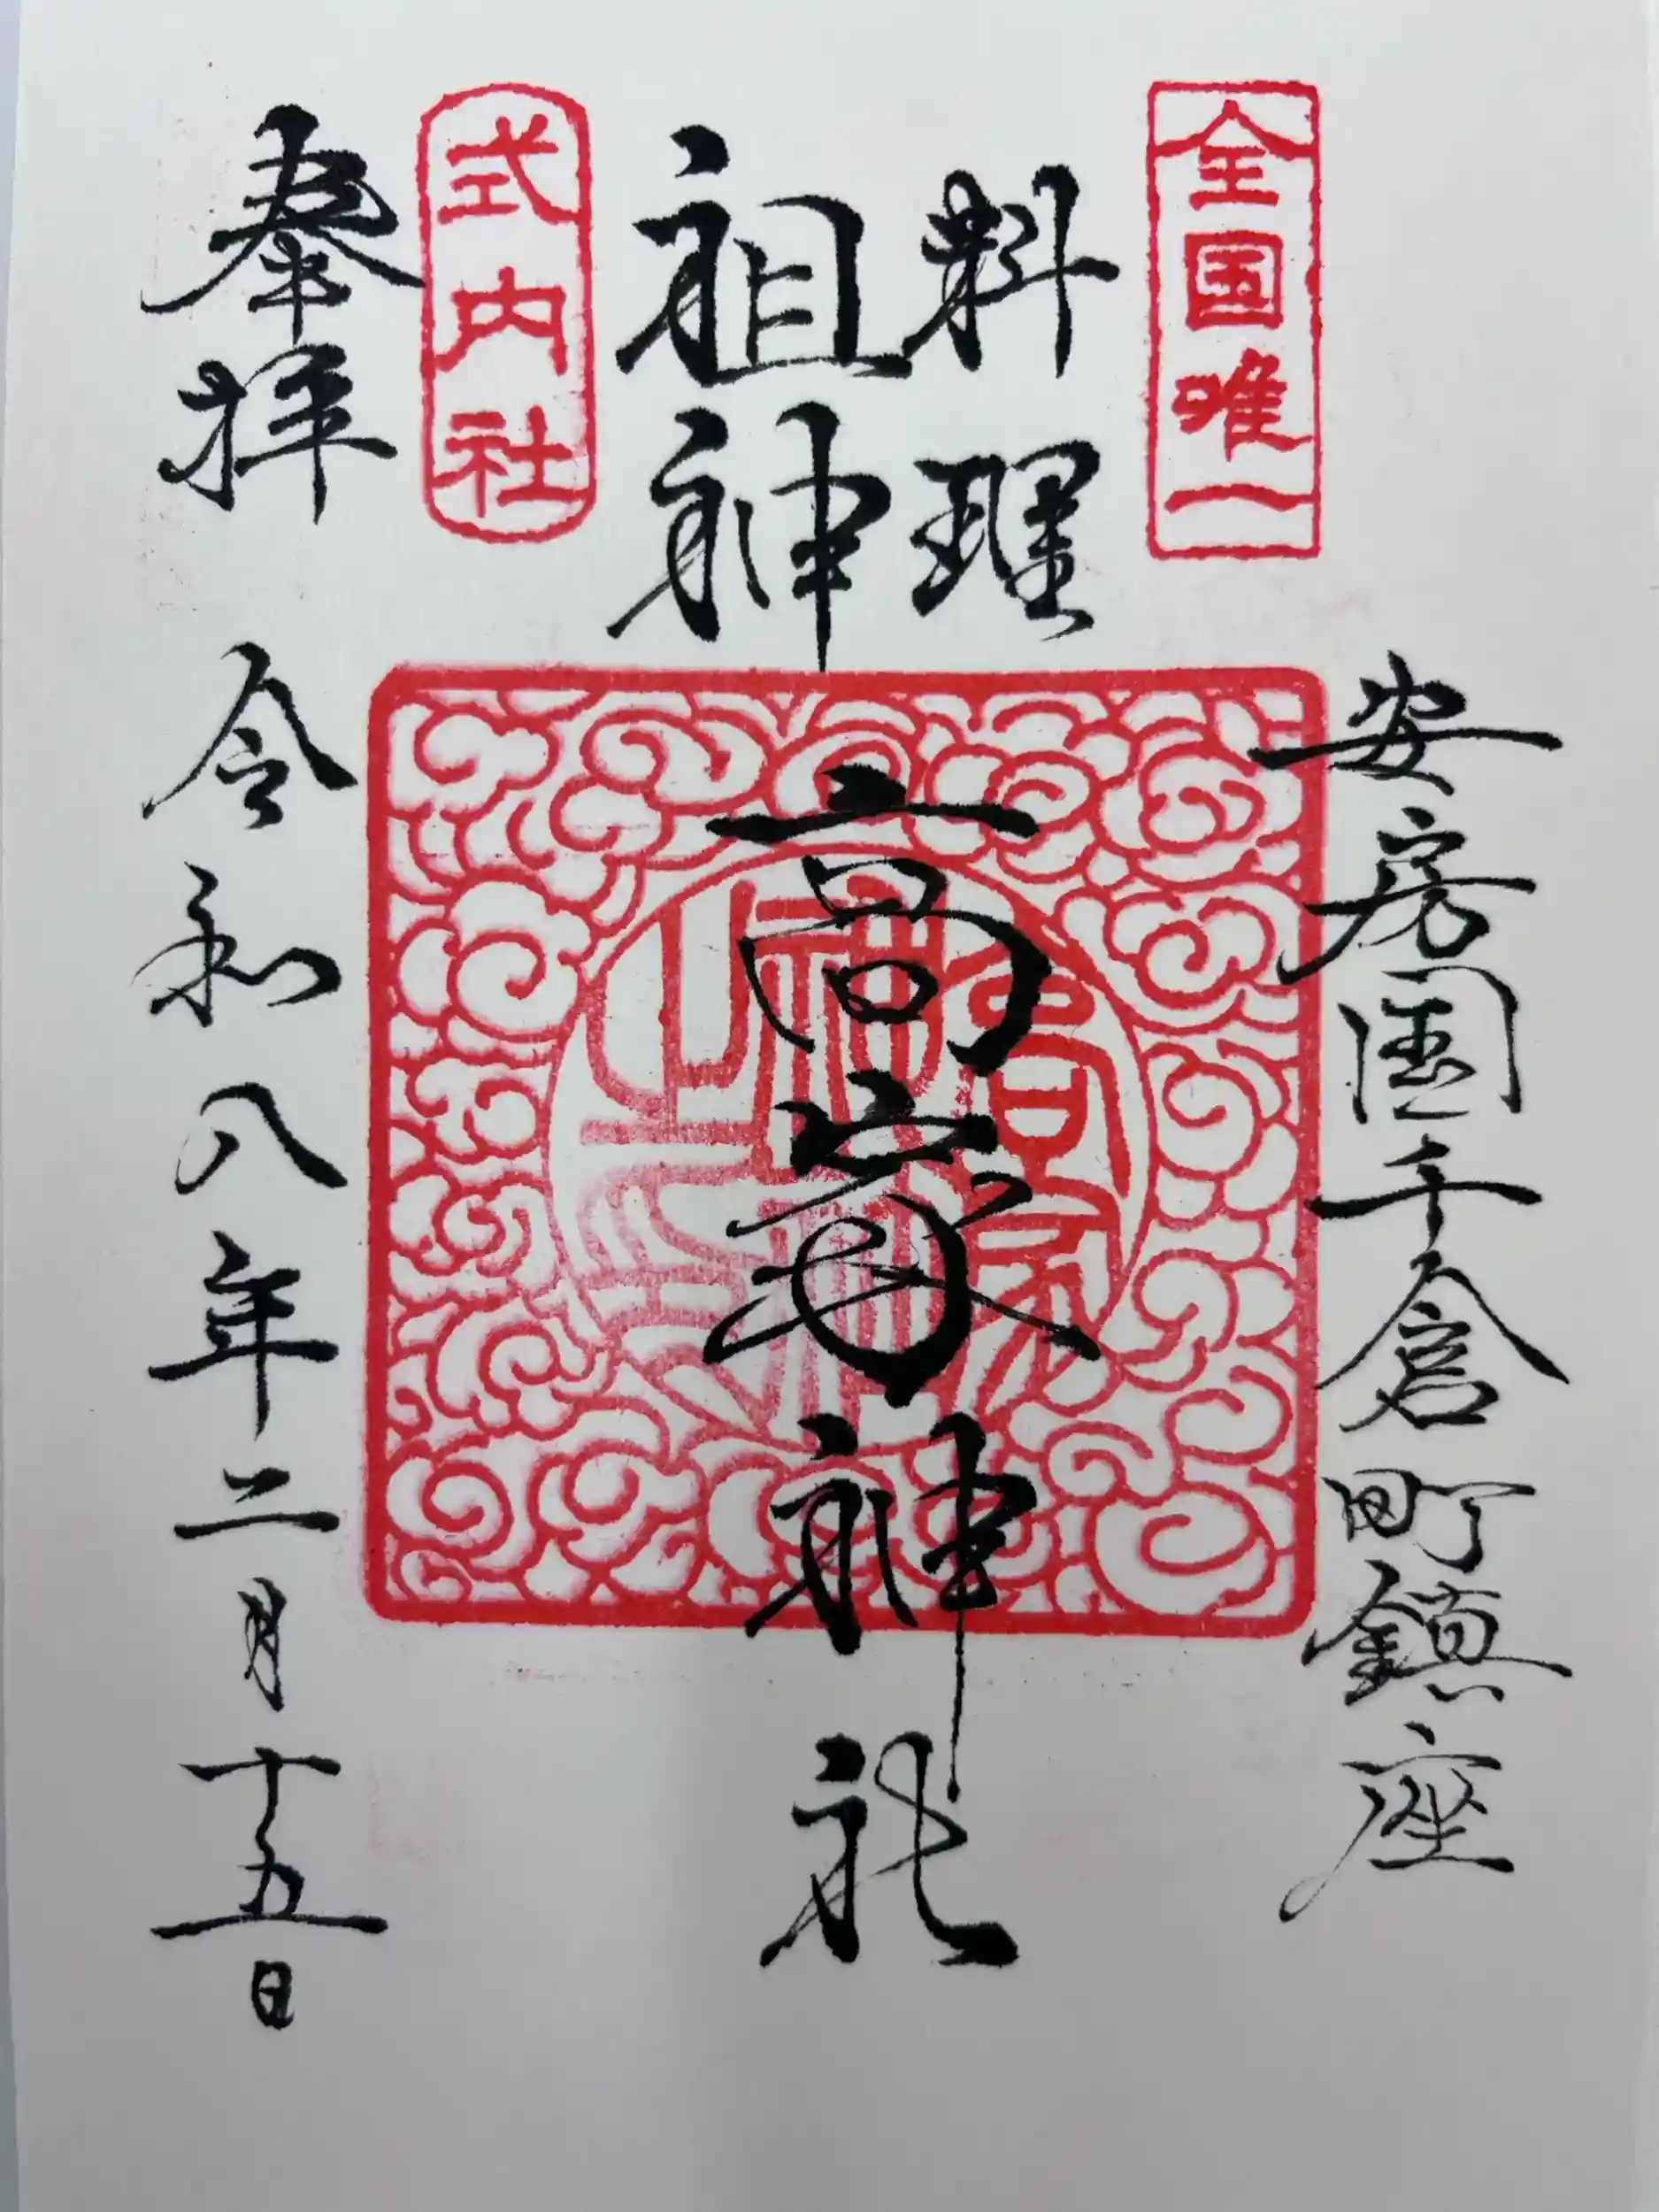 全国唯一
安房國千倉町鎮座
料理
祖神
高家神社
式内社
奉拝
令和八年二月十五日